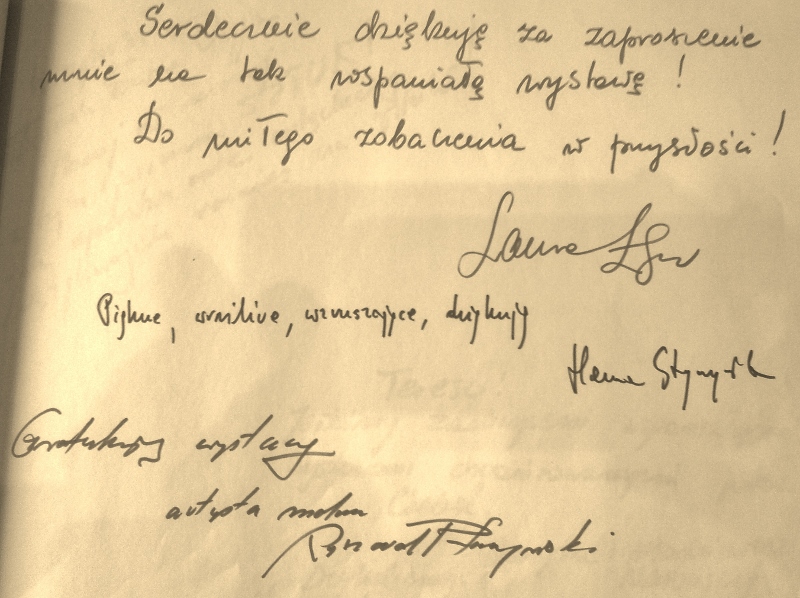 Serdecznie dziękuję za zaproszenie
mnie na tak wspaniałą wystawę !
Do miłego zobaczenia w przyszłości !
Laura
Piękne, wrażliwe, wzruszające, dziękuję
Hanna
Gratuluję wystawy
artysta
Ryszard